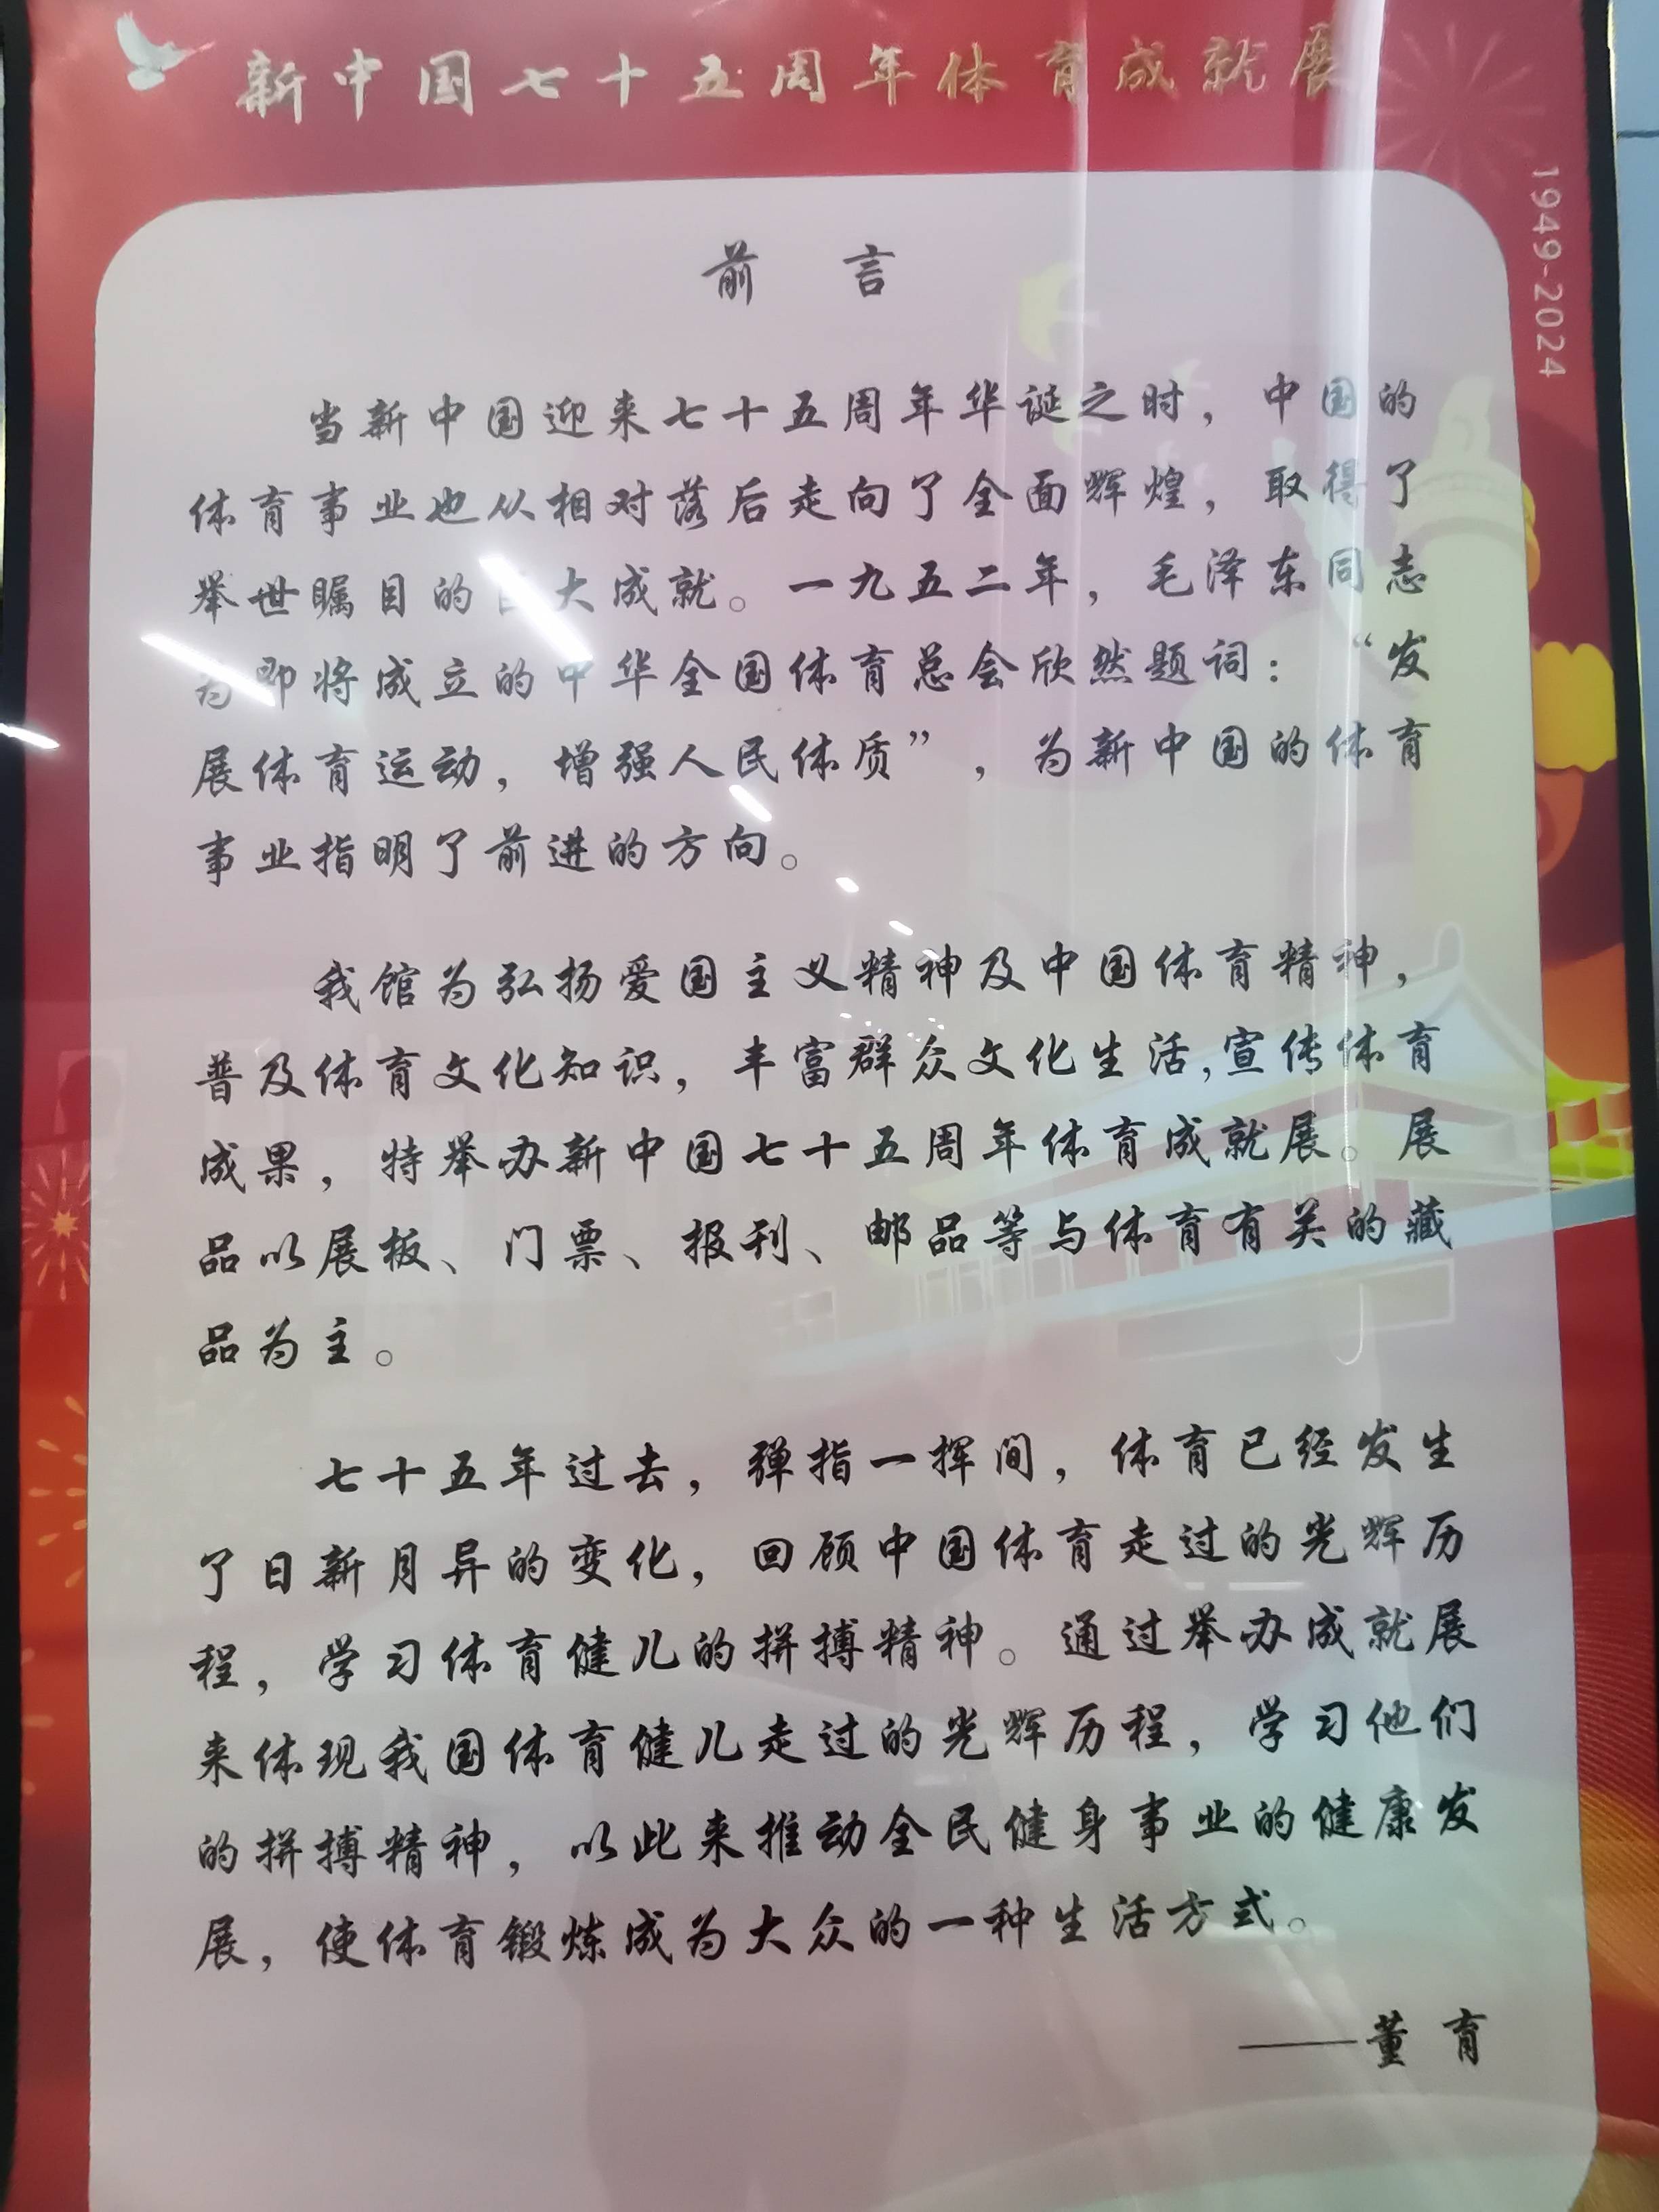 新中国七十五周年体育成就展
1949-2024
前 言
当新中国迎来七十五周年华诞之时，中国的
体育事业也从相对落后走向了全面辉煌，取得了
举世瞩目的巨大成就。一九五二年，毛泽东同志
为即将成立的中华全国体育总会欣然题词：“发
展体育运动，增强人民体质”，为新中国的体育
事业指明了前进的方向。
我馆为弘扬爱国主义精神及中国体育精神，
普及体育文化知识，丰富群众文化生活,宣传体育
成果，特举办新中国七十五周年体育成就展。展
品以展板、门票、报刊、邮品等与体育有关的藏
品为主。
七十五年过去，弹指一挥间，体育已经发生
了日新月异的变化，回顾中国体育走过的光辉历
程，学习体育健儿的拼搏精神。通过举办成就展
来体现我国体育健儿走过的光辉历程，学习他们
的拼搏精神，以此来推动全民健身事业的健康发
展，使体育锻炼成为大众的一种生活方式。
——董 育